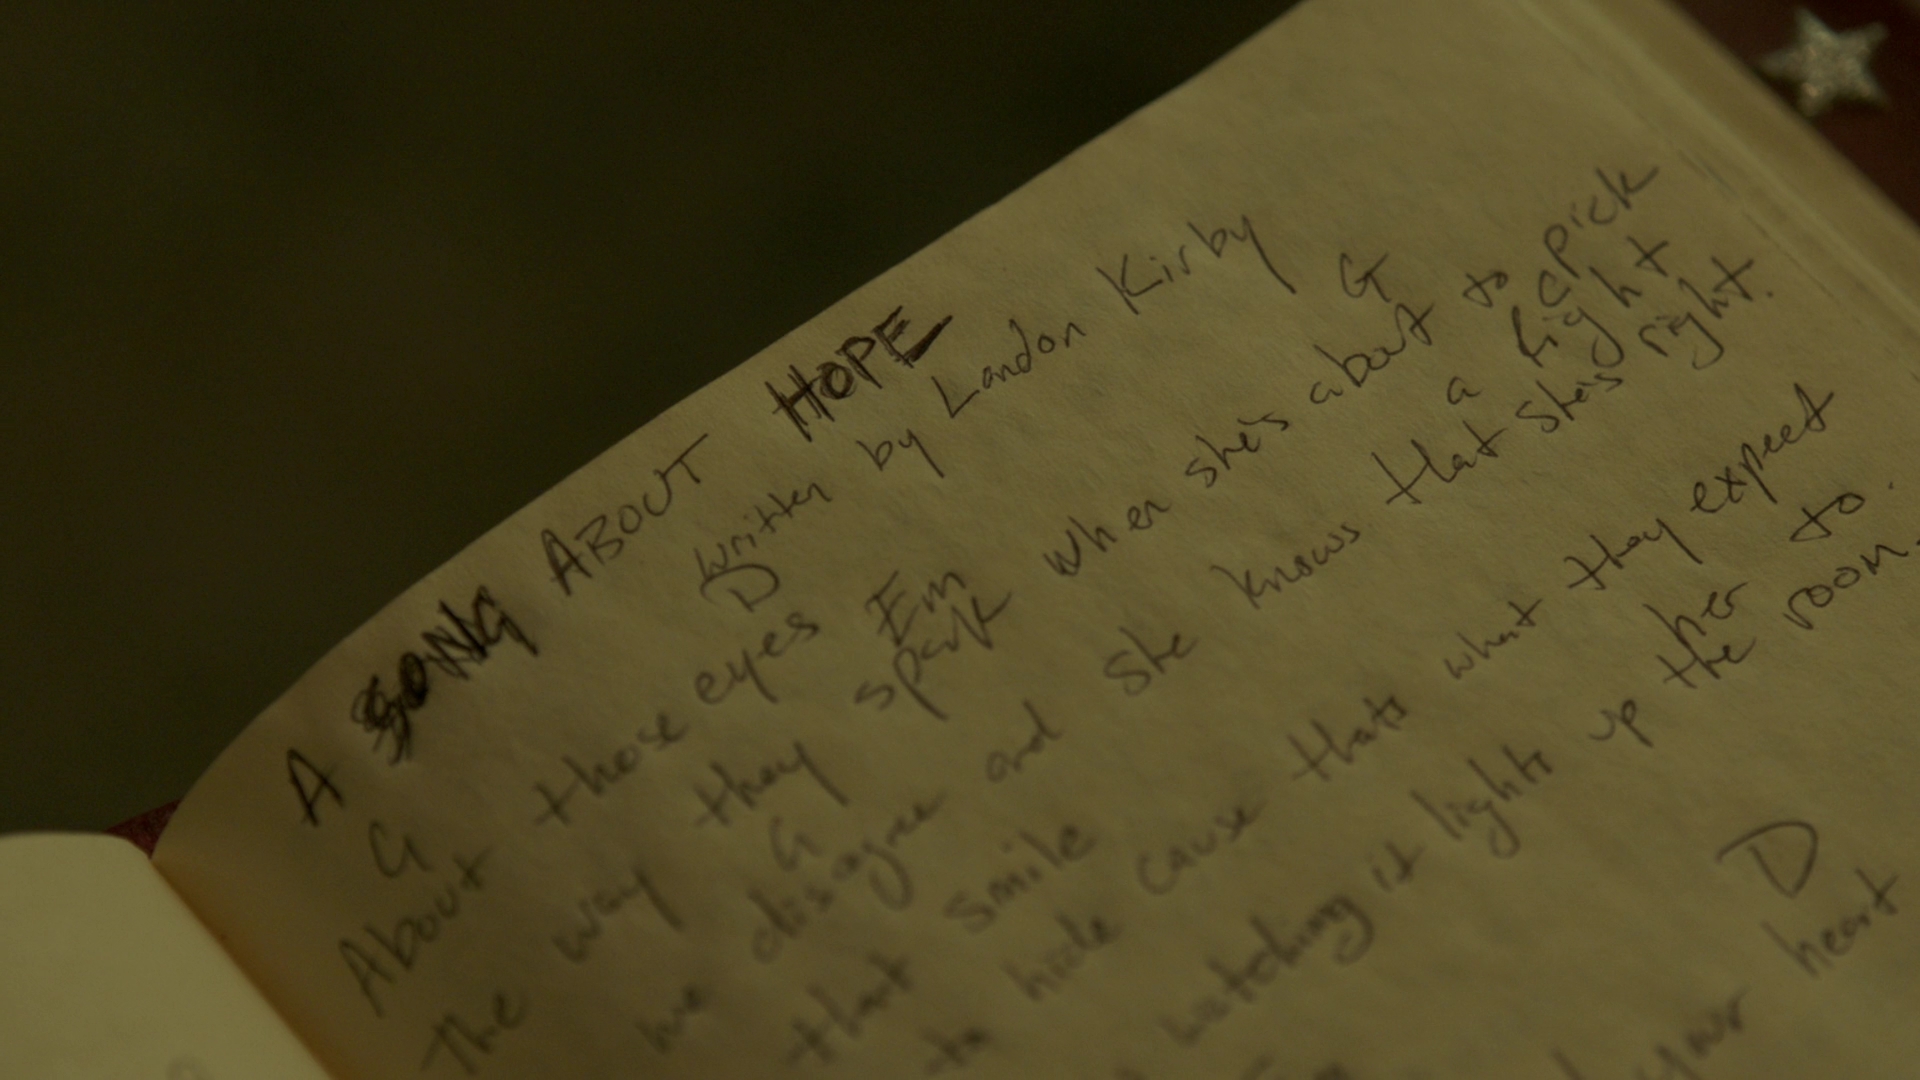 A SONG ABOUT HOPE
written by Landon Kirby
G D
About those eyes
Em G
The way they spark when she's about to pick
G C
a fight
we disagree and she knows that she's right.
that smile
to hide cause thats what they expect
her to.
watching it lights up the room.
D
your heart